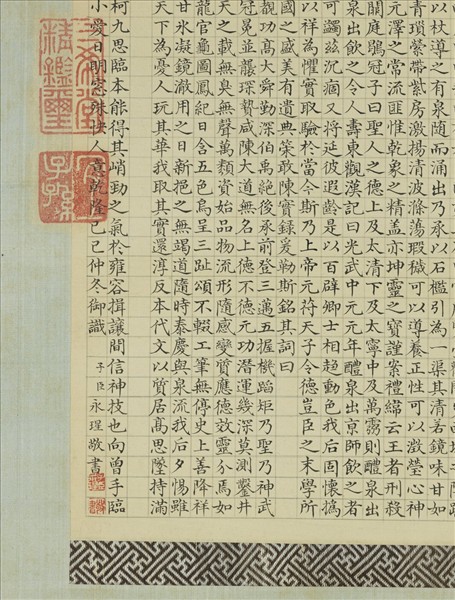 以杖導之有泉隨而涌出乃承以石檻引為一渠其清若鏡味甘如
青瑣縈帶紫房激揚清波滌蕩瑕穢可以導養正性可以澂瑩心神
元澤之常流匪惟乾象之精蓋亦坤靈之寶謹案禮緯云王者刑殺
闕庭鶡冠子曰聖人之德上及太清下及太寧中及萬靈則醴泉出
泉出飲之令人壽東觀漢記曰光武中元元年醴泉出京師飲之者
可蠲茲沉痼又將延彼遐齡是以百辟卿士相趨動色我后固懷撝
以祥為懼實取驗於當今斯乃上帝元符天子令德豈臣之末學所
國之盛美有遺典策敢陳實錄爰勒斯銘其詞曰
覩功高大舜勤深伯禹絕後承前登三邁五握機蹈矩乃聖乃神武
冠冕並襲琛贄咸陳大道無名上德不德元功潛運幾深莫測鑿井
天之載無臭無聲萬類資始品物流形隨感變質應德效靈介焉如
龍官龜圖鳳紀日含五色烏呈三趾頌不輟工筆無停史上善降祥
甘冰凝鏡澈用之日新挹之無竭道隨時泰慶與泉流我后夕惕雖
天下為憂人玩其華我取其實還淳反本代文以質居髙思墜持滿
柯九思臨本能得其峭勁之氣於雍容揖讓間信神技也向曾手臨
小愛日明窓殊快人意乾隆己巳仲冬御識
子臣永瑆敬書
三希堂精鑑璽
宜子孫